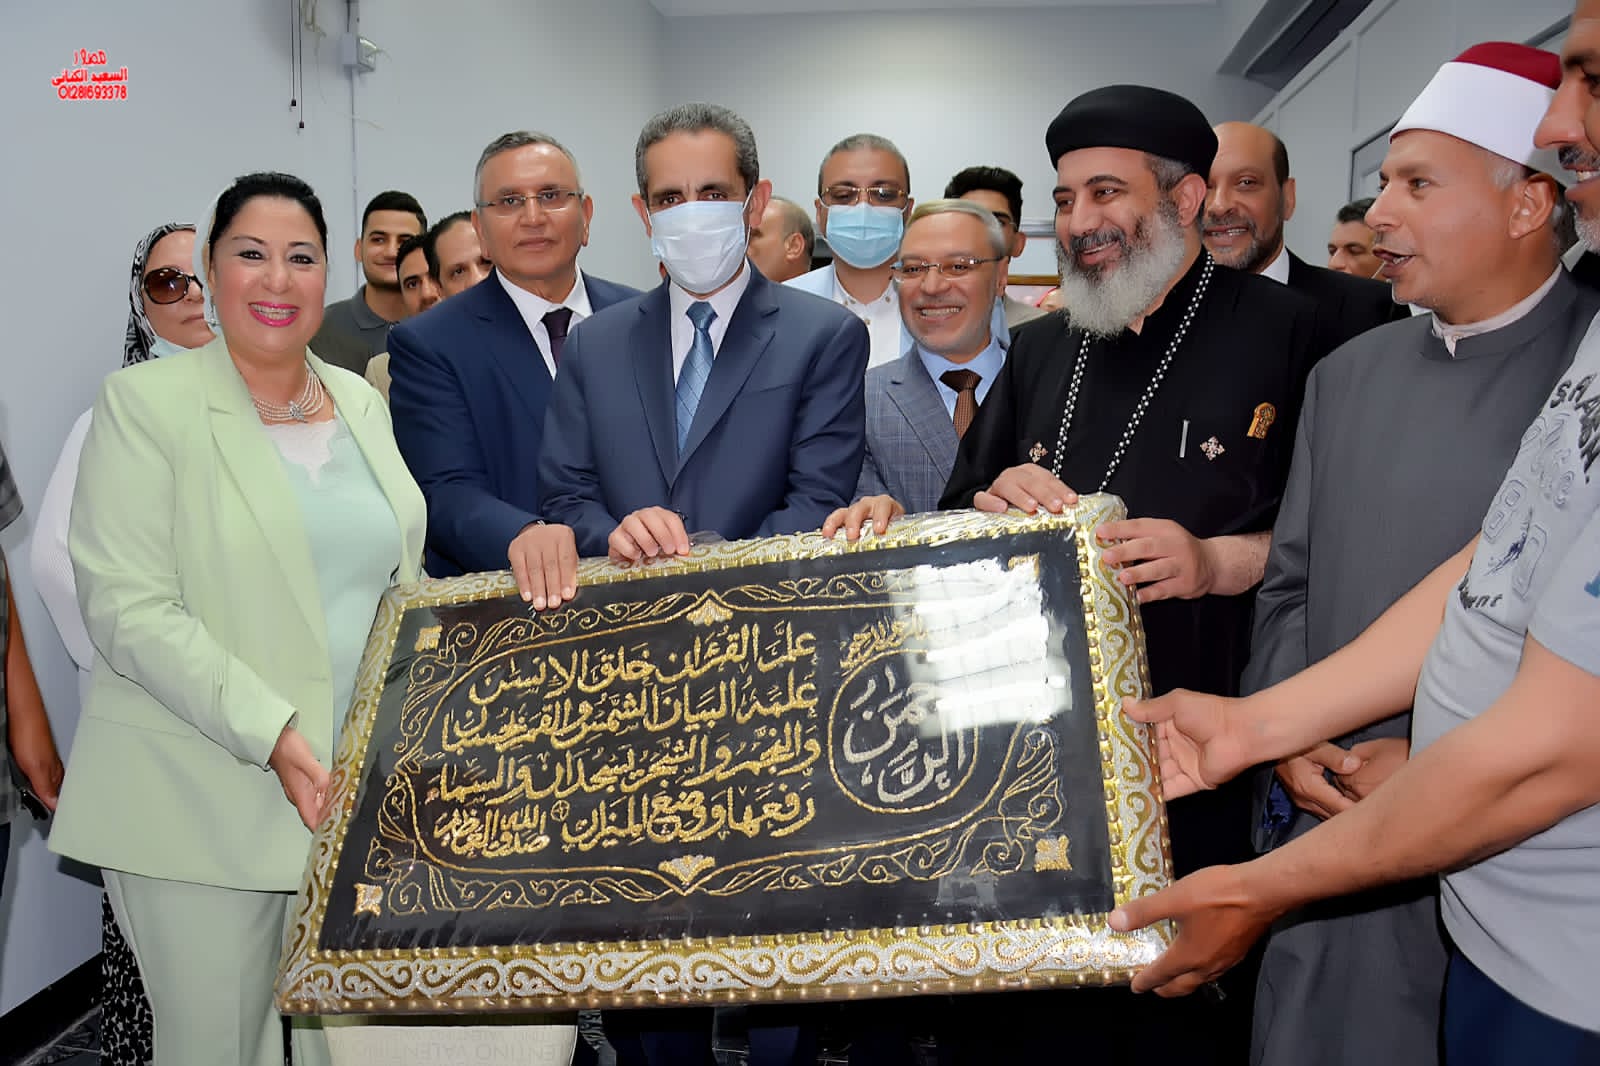 مصور
السعيد الكنانى
01281693378
الرحمن
علم القرءان خلق الانسن
علمه البيان الشمس والقمر بحسبان
والنجم والشجر يسجدان والسماء
رفعها ووضع الميزان
صدق الله العظيم